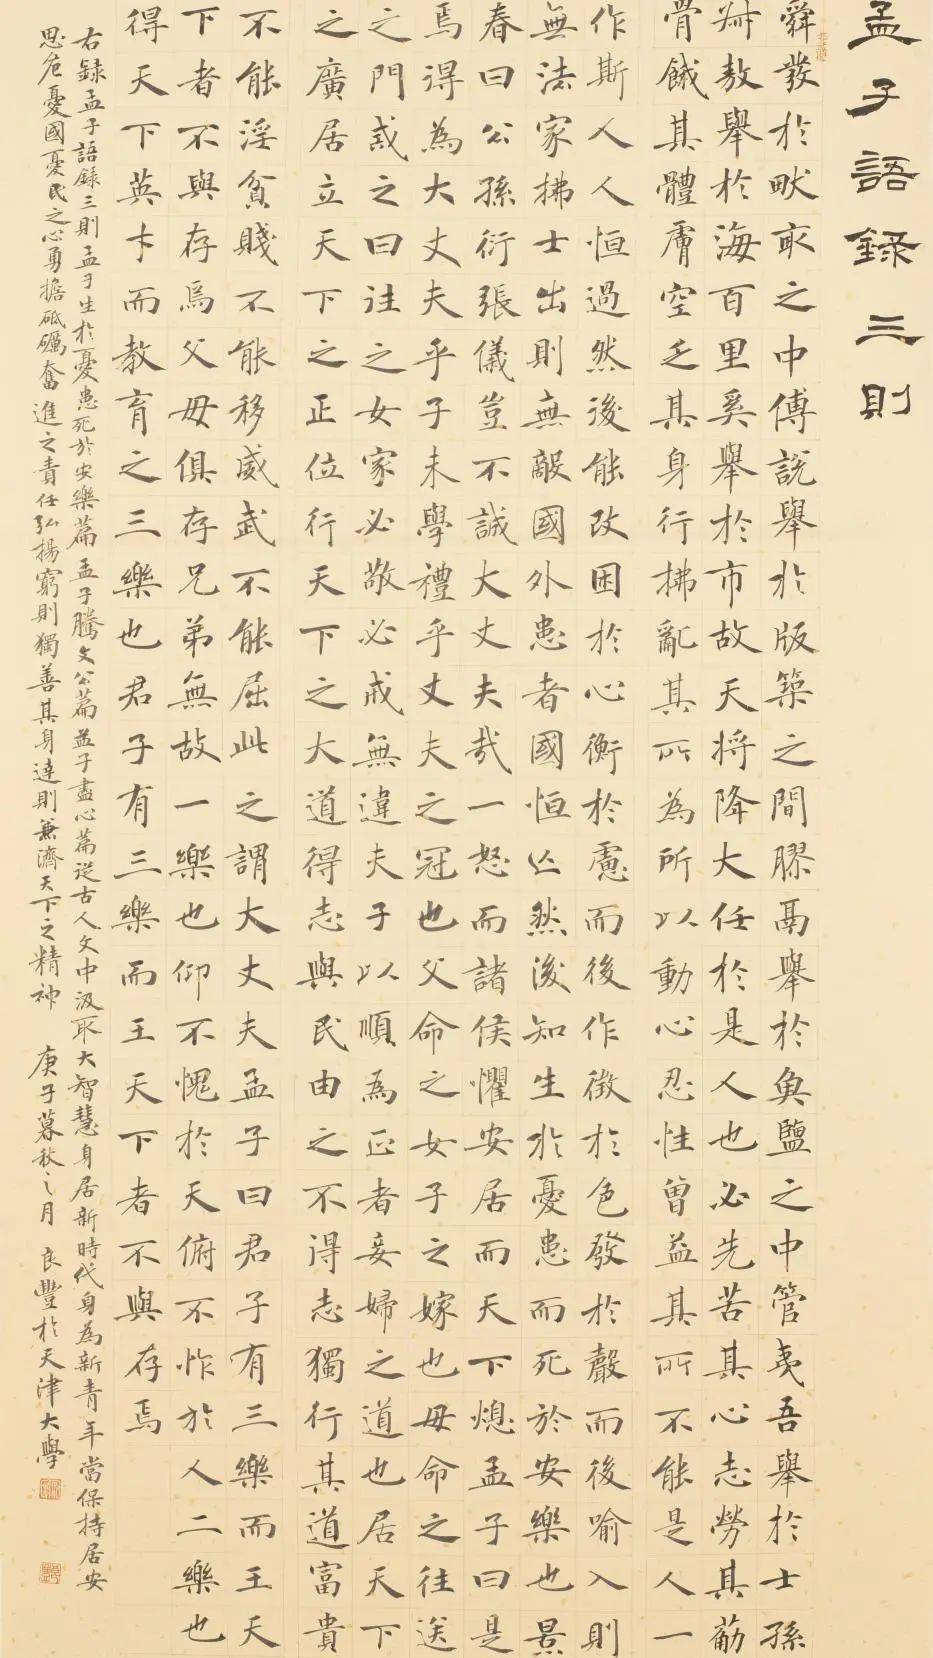 孟子語錄三則
舜發於畎畝之中傅說舉於版築之間膠鬲舉於魚鹽之中管夷吾舉於士孫
叔敖舉於海百里奚舉於市故天將降大任於是人也必先苦其心志勞其筋
骨餓其體膚空乏其身行拂亂其所為所以動心忍性曾益其所不能是人一
作斯人人恒過然後能改困於心衡於慮而後作徵於色發於聲而後喻入則
無法家拂士出則無敵國外患者國恒亡然後知生於憂患而死於安樂也景
春曰公孫衍張儀豈不誠大丈夫哉一怒而諸侯懼安居而天下熄孟子曰是
焉得為大丈夫乎子未學禮乎丈夫之冠也父命之女子之嫁也母命之往送
之門戒之曰往之女家必敬必戒無違夫子以順為正者妾婦之道也居天下
之廣居立天下之正位行天下之大道得志與民由之不得志獨行其道富貴
不能淫貧賤不能移威武不能屈此之謂大丈夫孟子曰君子有三樂而王天
下者不與存焉父母俱存兄弟無故一樂也仰不愧於天俯不怍於人二樂也
得天下英才而教育之三樂也君子有三樂而王天下者不與存焉
右錄孟子語錄三則孟子生於憂患死於安樂篇孟子騰文公篇孟子盡心篇從古人文中汲取大智慧身居新時代身為新青年當保持居安
思危憂國憂民之心勇擔砥礪奮進之責任弘揚窮則獨善其身達則兼濟天下之精神 庚子暮秋之月 良豐於天津大學